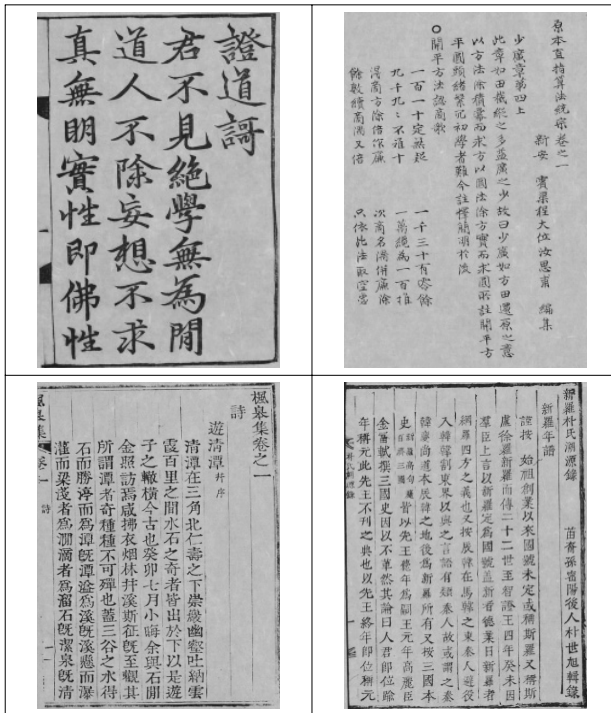 證道謌
君不見絶學無為閒
道人不除妄想不求
真無明實性即佛性
原本直指算法統宗卷之一
新安 賓渠程大位汝思甫 編集
少廣章第四上
此章如田截縱之多益廣之少故曰少廣如方田還原之意
以方法除積冪而求方以圓法除方實而求圓所註開平方
平圓頭緒繁冗初學者難今註釋簡明於後
○開平方法認商歌
一百一十定無疑 一千三十有零餘
九千九〻不離十 一萬纔為一百推
得商方除倍作廉 次商名隅併廉除
餘數續商隅又倍 只依此法取空虛
楓皐集卷之一
詩
遊清潭 并序
清潭在三角北仁壽之下崇巖幽壑吐納雲
霞百里之間水石之奇者皆出於下以是遊
子之轍橫今古也癸卯七月小晦余與石閒
金照訪焉咸拂衣烟林幷溪斯征旣至觀其
所謂潭者奇種種不可殫也蓋三谷之水得
石而勝渟而為潭旣潭溢為溪旣溪懸而瀑
灌而梁淺者為滴者為溜石旣潔泉旣清
楓皐集 卷一 詩 一
新羅杜氏溯源錄 苗裔孫宿陽後人杜世旭輯錄
新羅年譜
謹按 始祖創業以來國號未定或稱斯羅又稱斯
盧徐羅新羅而傳二十二世至智證王四年癸未因
羣臣上言以新羅定為國號蓋新者德業日新羅者
網羅四方之義也又按辰韓在馬韓之東秦人避役
入韓韓割東界以與之言語有類秦人故或謂之秦
韓慶尚道本辰韓之地後為新羅所有又按三國本
史新羅高句麗百濟三國皆以先王薨年為嗣王元年高麗臣
金富軾撰三國史因以不革然其論曰人君即位踰
年稱元此先王不刊之典也以先王終年即位稱元